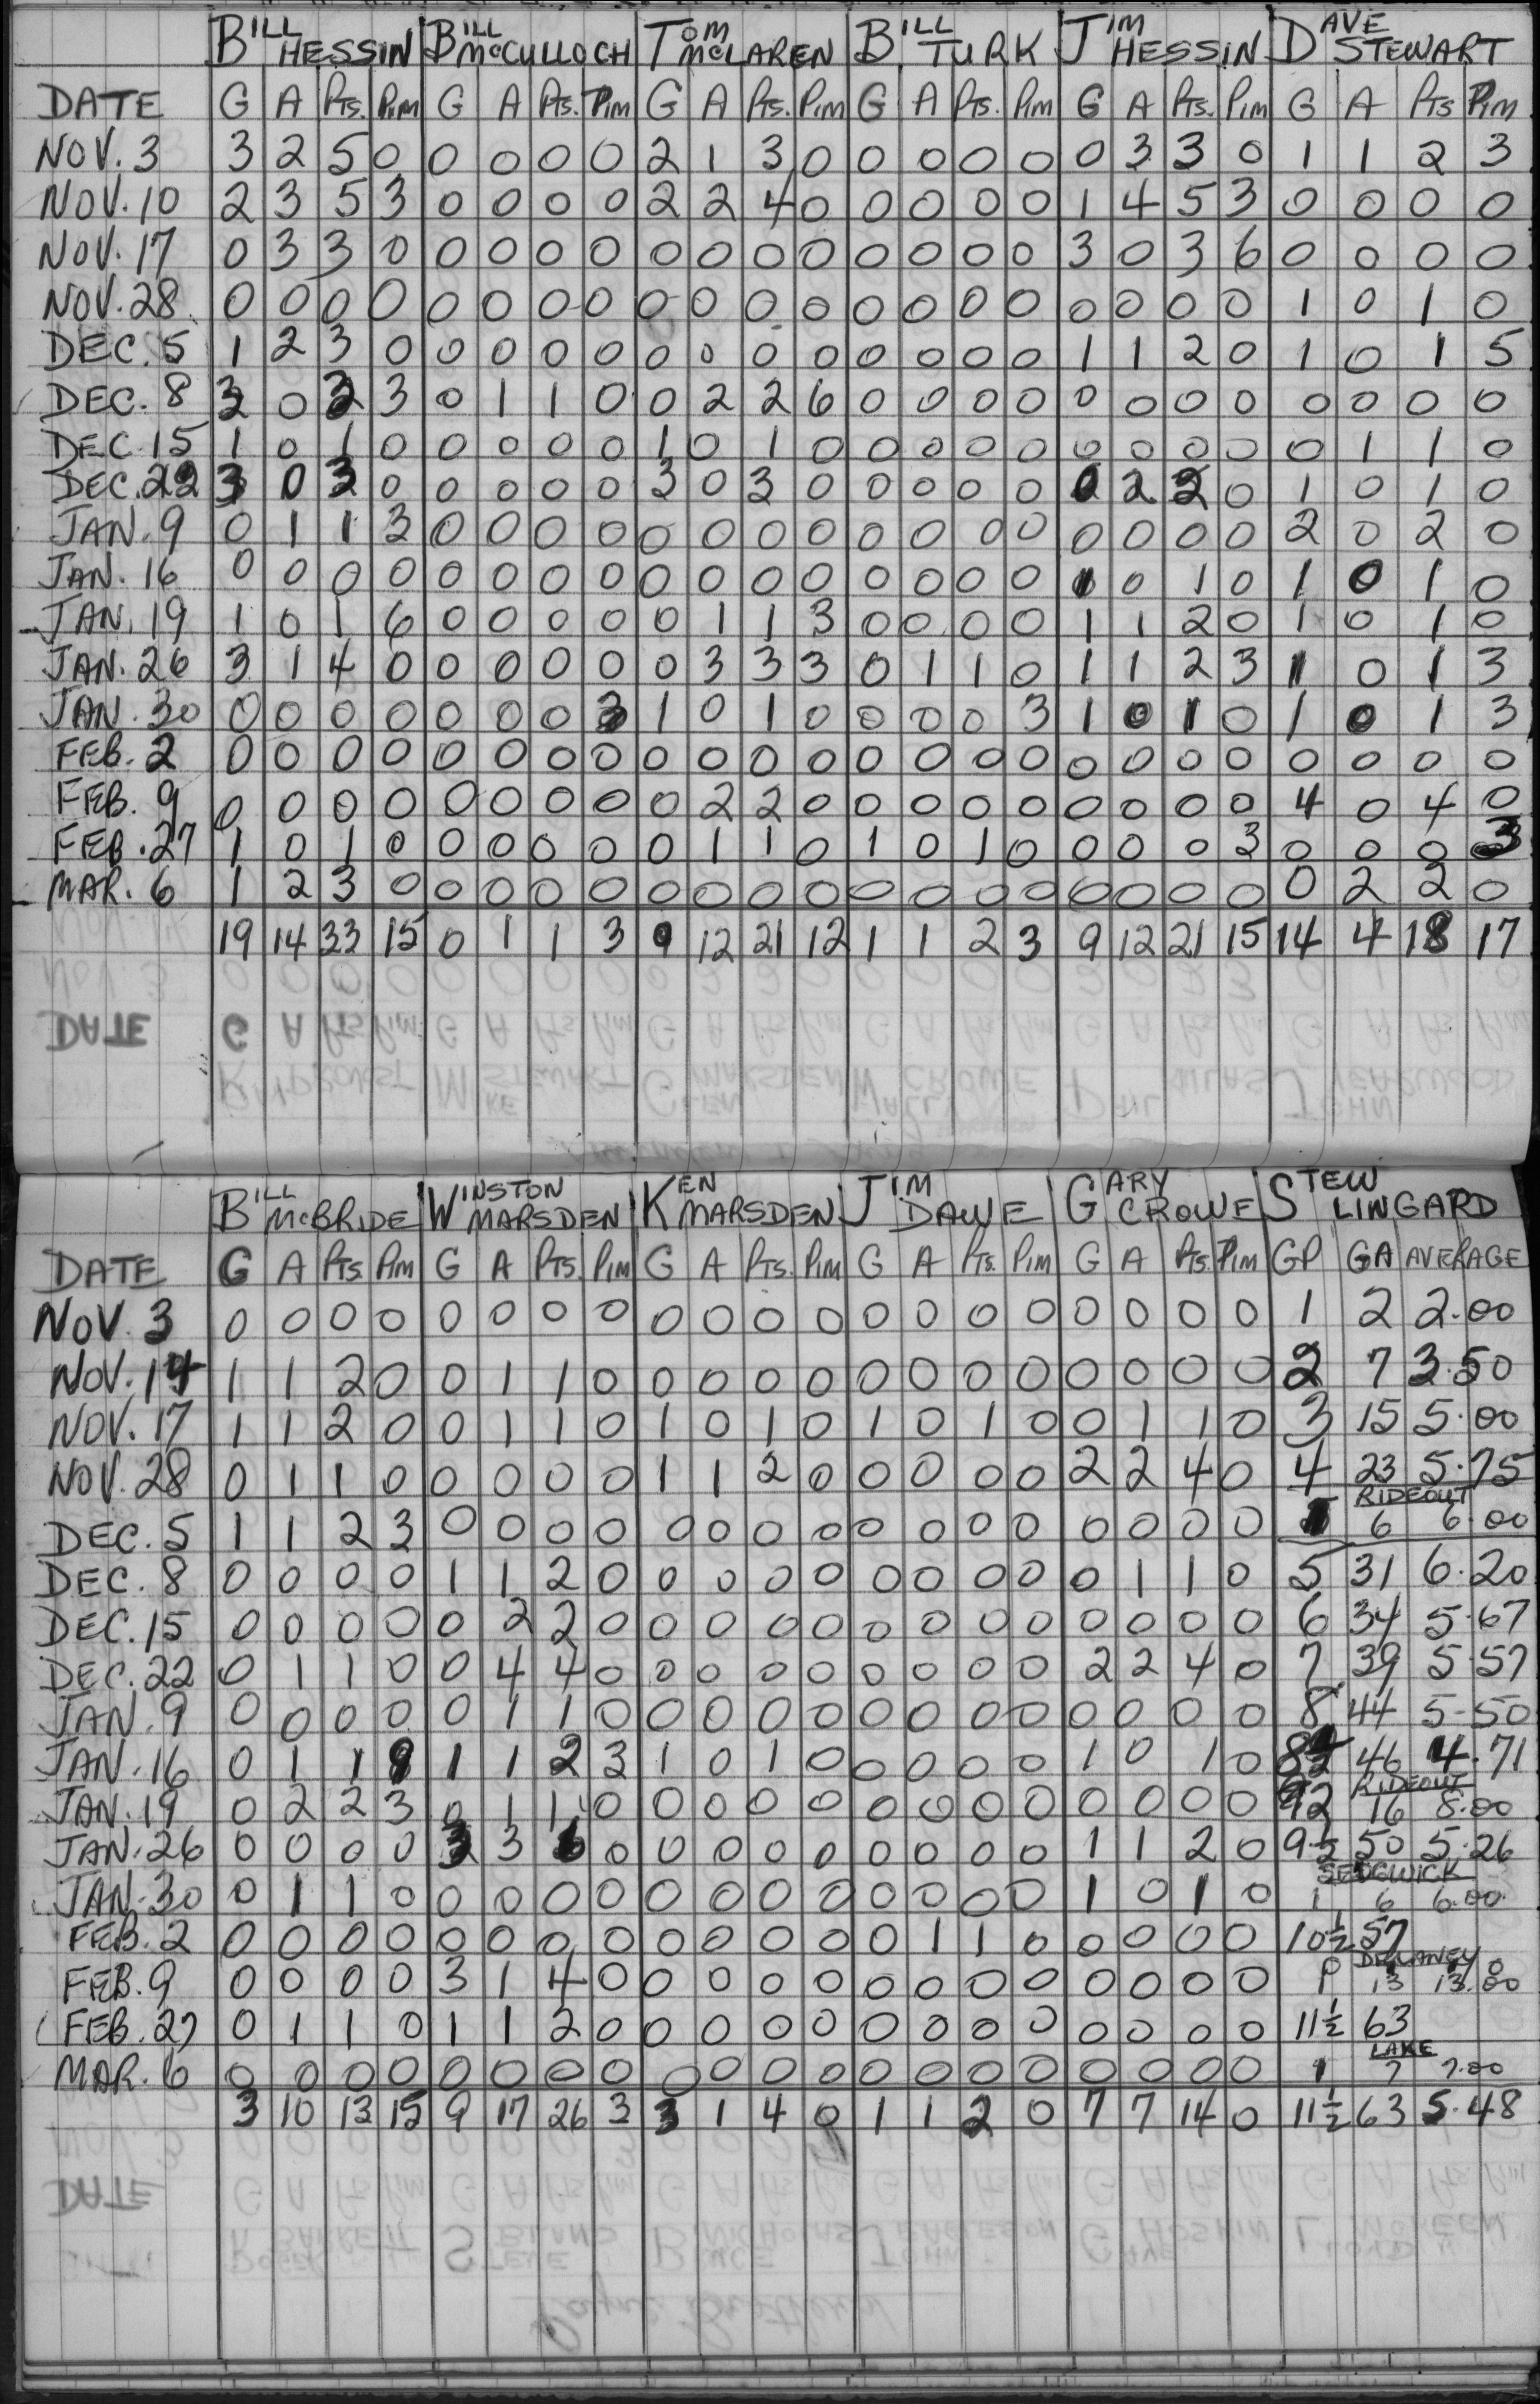 BILL HESSIN BILL McCULLOCH TOM McLAREN BILL TURK JIM HESSIN DAVE STEWART
DATE G A Pts. Pim G A Pts. Pim G A Pts. Pim G A Pts. Pim G A Pts. Pim G A Pts Pim
NOV. 3 3 2 5 0 0 0 0 0 2 1 3 0 0 0 0 0 0 3 3 0 1 1 2 3
NOV. 10 2 3 5 3 0 0 0 0 2 2 4 0 0 0 0 0 1 4 5 3 0 0 0 0
NOV. 17 0 3 3 0 0 0 0 0 0 0 0 0 0 0 0 0 3 0 3 6 0 0 0 0
NOV. 28 0 0 0 0 0 0 0 0 0 0 0 0 0 0 0 0 0 0 0 0 1 0 1 0
DEC. 5 1 2 3 0 0 0 0 0 0 0 0 0 0 0 0 0 1 1 2 0 1 0 1 5
DEC. 8 3 0 3 3 0 1 1 0 0 2 2 6 0 0 0 0 0 0 0 0 0 0 0 0
DEC. 15 1 0 1 0 0 0 0 0 1 0 1 0 0 0 0 0 0 0 0 0 0 1 1 0
DEC. 22 3 0 3 0 0 0 0 0 3 0 3 0 0 0 0 0 0 2 2 0 1 0 1 0
JAN. 9 0 1 1 3 0 0 0 0 0 0 0 0 0 0 0 0 0 0 0 0 2 0 2 0
JAN. 16 0 0 0 0 0 0 0 0 0 0 0 0 0 0 0 0 1 0 1 0 1 0 1 0
JAN. 19 1 0 1 6 0 0 0 0 0 1 1 3 0 0 0 0 1 1 2 0 1 0 1 0
JAN. 26 3 1 4 0 0 0 0 0 0 3 3 3 0 1 1 0 1 1 2 3 1 0 1 3
JAN. 30 0 0 0 0 0 0 0 3 1 0 1 0 0 0 0 3 1 0 1 0 1 0 1 3
FEB. 2 0 0 0 0 0 0 0 0 0 0 0 0 0 0 0 0 0 0 0 0 0 0 0 0
FEB. 9 0 0 0 0 0 0 0 0 0 2 2 0 0 0 0 0 0 0 0 0 4 0 4 0
FEB. 27 1 0 1 0 0 0 0 0 0 1 1 0 1 0 1 0 0 0 0 3 0 0 0 3
MAR. 6 1 2 3 0 0 0 0 0 0 0 0 0 0 0 0 0 0 0 0 0 0 2 2 0
19 14 33 15 0 1 1 3 9 12 21 12 1 1 2 3 9 12 21 15 14 4 18 17
BILL McBRIDE WINSTON MARSDEN KEN MARSDEN JIM DAWE GARY CROWE STEW LINGARD
DATE G A Pts. Pim G A Pts. Pim G A Pts. Pim G A Pts. Pim G A Pts. Pim GP GA AVERAGE
NOV. 3 0 0 0 0 0 0 0 0 0 0 0 0 0 0 0 0 0 0 0 0 1 2 2.00
NOV. 14 1 1 2 0 0 1 1 0 0 0 0 0 0 0 0 0 0 0 0 0 2 7 3.50
NOV. 17 1 1 2 0 0 1 1 0 1 0 1 0 1 0 1 0 0 1 1 0 3 15 5.00
NOV. 28 0 1 1 0 0 0 0 0 1 1 2 0 0 0 0 0 2 2 4 0 4 23 5.75
RIDEOUT
DEC. 5 1 1 2 3 0 0 0 0 0 0 0 0 0 0 0 0 0 0 0 0 1 6 6.00
DEC. 8 0 0 0 0 1 1 2 0 0 0 0 0 0 0 0 0 0 1 1 0 5 31 6.20
DEC. 15 0 0 0 0 0 2 2 0 0 0 0 0 0 0 0 0 0 0 0 0 6 34 5.67
DEC. 22 0 1 1 0 0 4 4 0 0 0 0 0 0 0 0 0 2 2 4 0 7 39 5.57
JAN. 9 0 0 0 0 0 1 1 0 0 0 0 0 0 0 0 0 0 0 0 0 8 44 5.50
JAN. 16 0 1 1 9 1 1 2 3 1 0 1 0 0 0 0 0 1 0 1 0 46 4.71
RIDEOUT
JAN. 19 0 2 2 3 0 1 1 0 0 0 0 0 0 0 0 0 0 0 0 0 2 16 8.00
JAN. 26 0 0 0 0 3 3 6 0 0 0 0 0 0 0 0 0 1 1 2 0 9½ 50 5.26
SEDGWICK
JAN. 30 0 1 1 0 0 0 0 0 0 0 0 0 0 0 0 0 1 0 1 0 1 6 6.00
FEB. 2 0 0 0 0 0 0 0 0 0 0 0 0 0 1 1 0 0 0 0 0 10½ 57
DELANEY
FEB. 9 0 0 0 0 3 1 4 0 0 0 0 0 0 0 0 0 0 0 0 0 1 13 13.00
FEB. 27 0 1 1 0 1 1 2 0 0 0 0 0 0 0 0 0 0 0 0 0 11½ 63
LAKE
MAR. 6 0 0 0 0 0 0 0 0 0 0 0 0 0 0 0 0 0 0 0 0 1 7 7.00
3 10 13 15 9 17 26 3 3 1 4 0 1 1 2 0 7 7 14 0 11½ 63 5.48